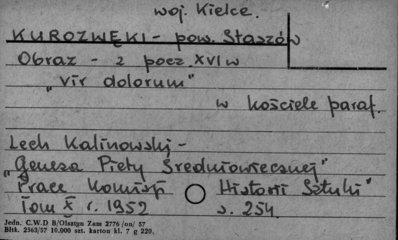 woj. Kielce.
KUROZWĘKI - pow. Staszów
Obraz - z pocz. XVI w
"vir dolorum"
w kościele paraf.
Lech Kalinowski -
"Geneza Piety Średniowiecznej"
Prace Komisji Historii Sztuki"
Tom X r. 1952
s. 254.
Jedn. C.W.D R/Olsztyn Zam 2776 /on/ 57
Błtk. 2563/57 10.000 szt. karton kl. 7 g 220.